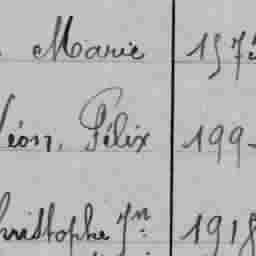 Marie 1975
Léon, Félix 199
Christophe Jn 1918